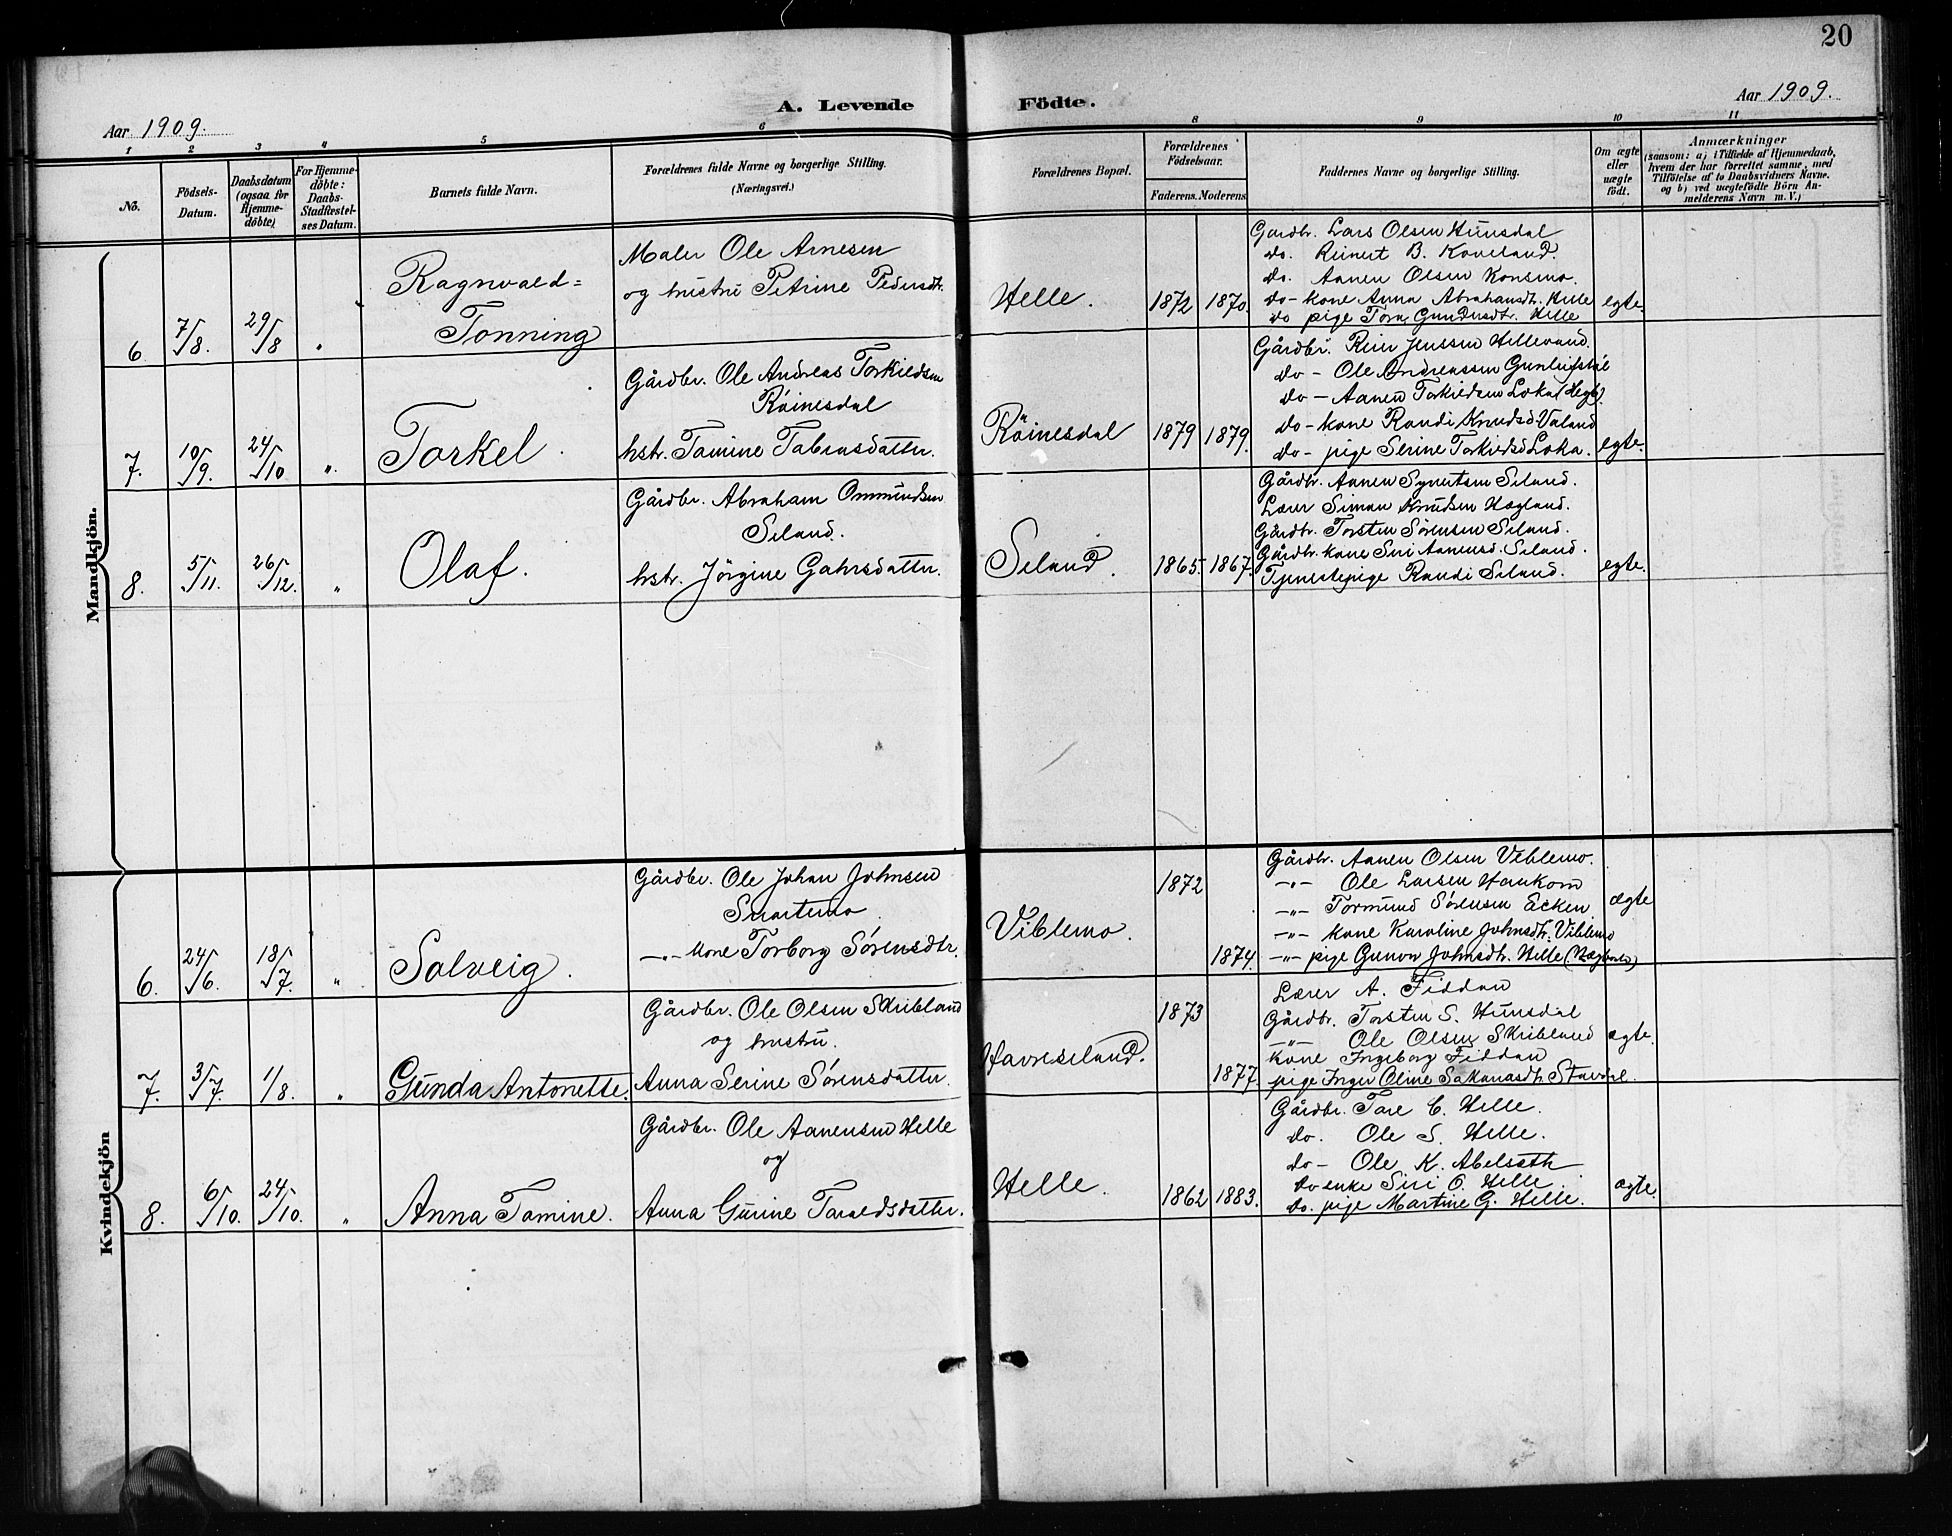 20
A. Levende Födte.
Aar 1909.
Aar 1909.
1 2 3 4 5 6 8 9 10 11
No.
Födsels-Datum.
Daabsdatum (ogsaa for Hjemme-döbte)
For Hjemme-döbte: Daabs-Stadfæstel-ses Datum.
Barnets fulde Navn.
Forældrenes fulde Navne og borgerlige Stilling.
(Næringsvei.)
Forældrenes Bopæl.
Forældrenes Födselsaar.
Faderens. Moderens.
Faddernes Navne og borgerlige Stilling.
Om ægte eller uægte födt.
Anmærkninger
(saasom: a) i Tilfælde af Hjemmedaab,
hvem der har forrettet samme, med
Tilföielse af to Daabsvidners Navne.
og b) ved uægtefödte Börn An-
melderens Navn m. V.)
Mandkjön.
6 7/8. 29/8 "
Ragnvald=
Tonning
Maler Ole Arnesen
og hustru Petrine Pedersdtr.
Helle. 1872 1870.
Gårdbr. Lars Olsen Hunsdal
do. Reinert B. Koveland.
do. Aanen Olsen Konsmo.
do - kone Anna Abrahamsdtr. Helle
do pige Tora Gundersdtr. Helle
egte.
7. 10/9. 24/10 ".
Torkel.
Gårdbr. Ole Andreas Torkildsen
Röinesdal
hstr. Tomine Tobiasdatter.
Röinesdal 1879 1879.
Gårdbr. Reier Jenssen Hellevand.
do - Ole Andreassen
do - Aanen Torkildsen Loka
do - kone Randi Knudsd. Valand
do - pige Serine Torkildsd Loka.
egte.
8. 5/11. 26/12. "
Olaf.
Gårdbr. Abraham Ommundsen
Seland.
hstr. Jörgine Gahrsdatter.
Seland. 1865. 1867.
Gårdbr. Aanen Syvertsen Seland.
Lærer Simon Knudsen Hægland.
Gårdbr. Torsten Sørensen Seland.
Gårdbr. kone Siri Aanensd. Seland.
Tjenestepige Randi Seland.
egte.
Kvindekjön
6. 24/6. 18/7. "
Solveig.
Gårdbr. Ole Johan Johnsen
Snartemo.
-"- kone Torborg Sørensdtr.
Viblemo. 1872 1874.
Gårdbr. Aanen Olsen Viblemo.
-"- Ole Larsen Haukom
-"- Tormund Sørensen Ecken
-"- kone Karoline Johnsdtr. Viblemo
-"- pige Gunvor Johnsdtr. Helle
ægte
7. 3/7. 1/8. "
Gunda Antonette.
Gårdbr. Ole Olsen Skribland
og hustru.
Anna Serine Sørensdatter.
Havreseland. 1873 1877.
Lærer A. Fiddan
Gårdbr. Torsten S. Hunsdal
-"- Ole Olsen Skribland
Kone Ingeborg Fiddan
pige Inger Oline Sakariasdtr. Stavdal.
ægte.
8. 6/10. 24/10. "
Anna Tomine.
Gårdbr. Ole Aanensen Helle
og
Anna Gurine Taraldsdatter.
Helle. 1862 1883.
Gårdbr. Tore C. Helle.
do. Ole S. Helle.
do - Ole K. Abelseth
do enke Siri O. Helle.
do. pige Martine G. Helle.
ægte.